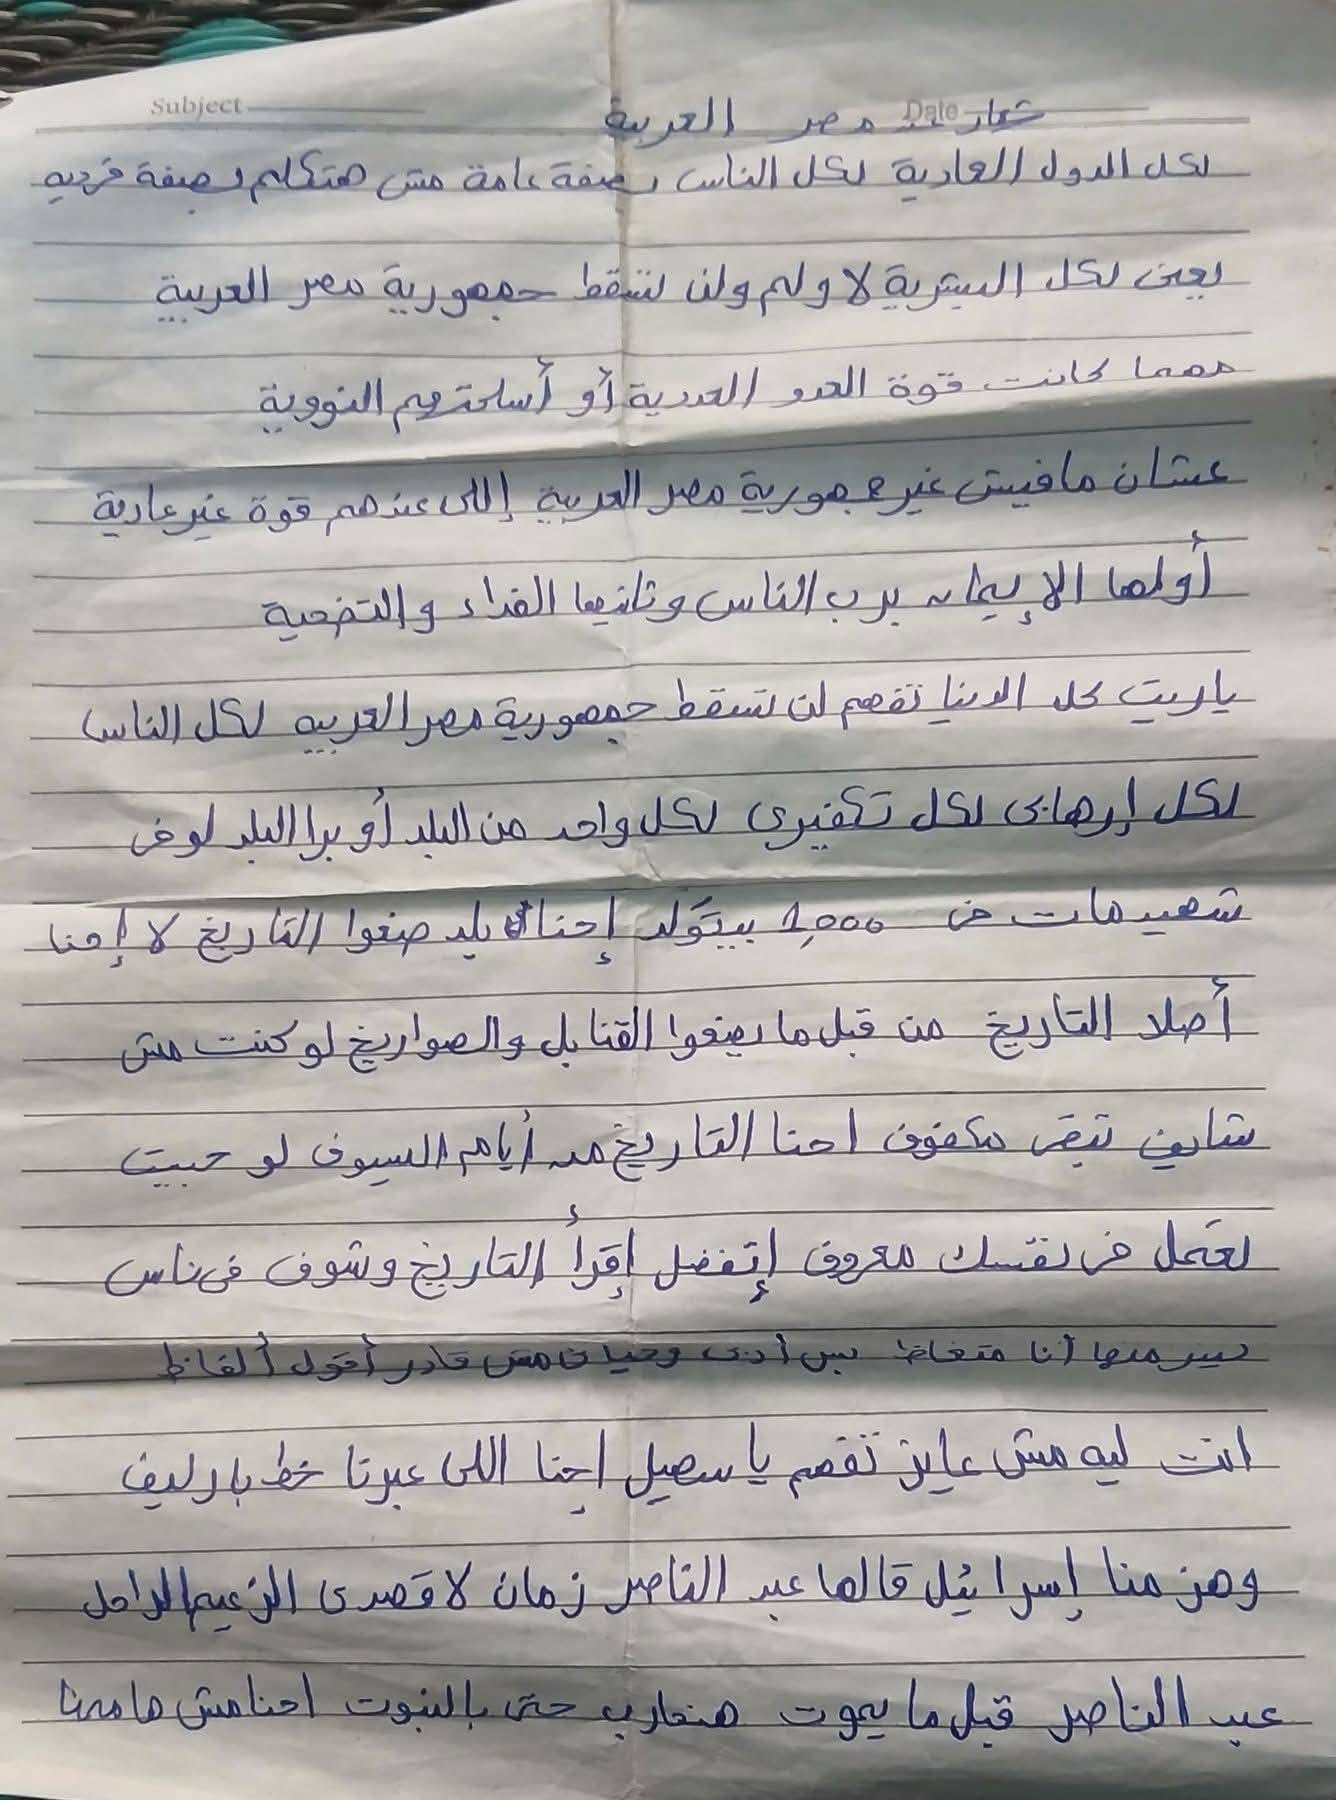 Subject Date
شعار مصر العربية
لكل الدول العادية لكل الناس بصفة عامة مش هتكلم بصفة فرديه
يعنى لكل البشرية لا ولم ولن تسقط جمهورية مصر العربية
مهما كانت قوة العدو العددية أو أسلحتهم النووية
عشان مافيش غير جمهورية مصر العربية إللى عندهم قوة غير عادية
أولها الإيمان برب الناس وثانيها الفداء والتضحية
ياريت كل الدنيا تفهم لن تسقط جمهورية مصر العربيه لكل الناس
لكل إرهابى لكل تكفيرى لكل واحد من البلد أو برا البلد لو فى
شهيد مات فى 1,000 بيتولد إحنا بلد صنعوا التاريخ لا إحنا
أصلا التاريخ من قبل ما يصنعوا القنابل والصواريخ لو كنت مش
شايف تبقى مكفوف احنا التاريخ من أيام السيوف لو حبيت
تعمل فى نفسك معروف إتفضل إقرأ التاريخ وشوف فى ناس
أنا متغاظ بس أدبى وحيائى مش قادر أقول ألفاظ
انت ليه مش عايز تفهم يا سهيل إحنا اللى عبرنا خط بارليف
وهزمنا إسرائيل قالها عبد الناصر زمان لا قصدى الزعيم الراحل
عبد الناصر قبل ما يموت هنحارب حتى بالنبوت احنا مش هاممنا